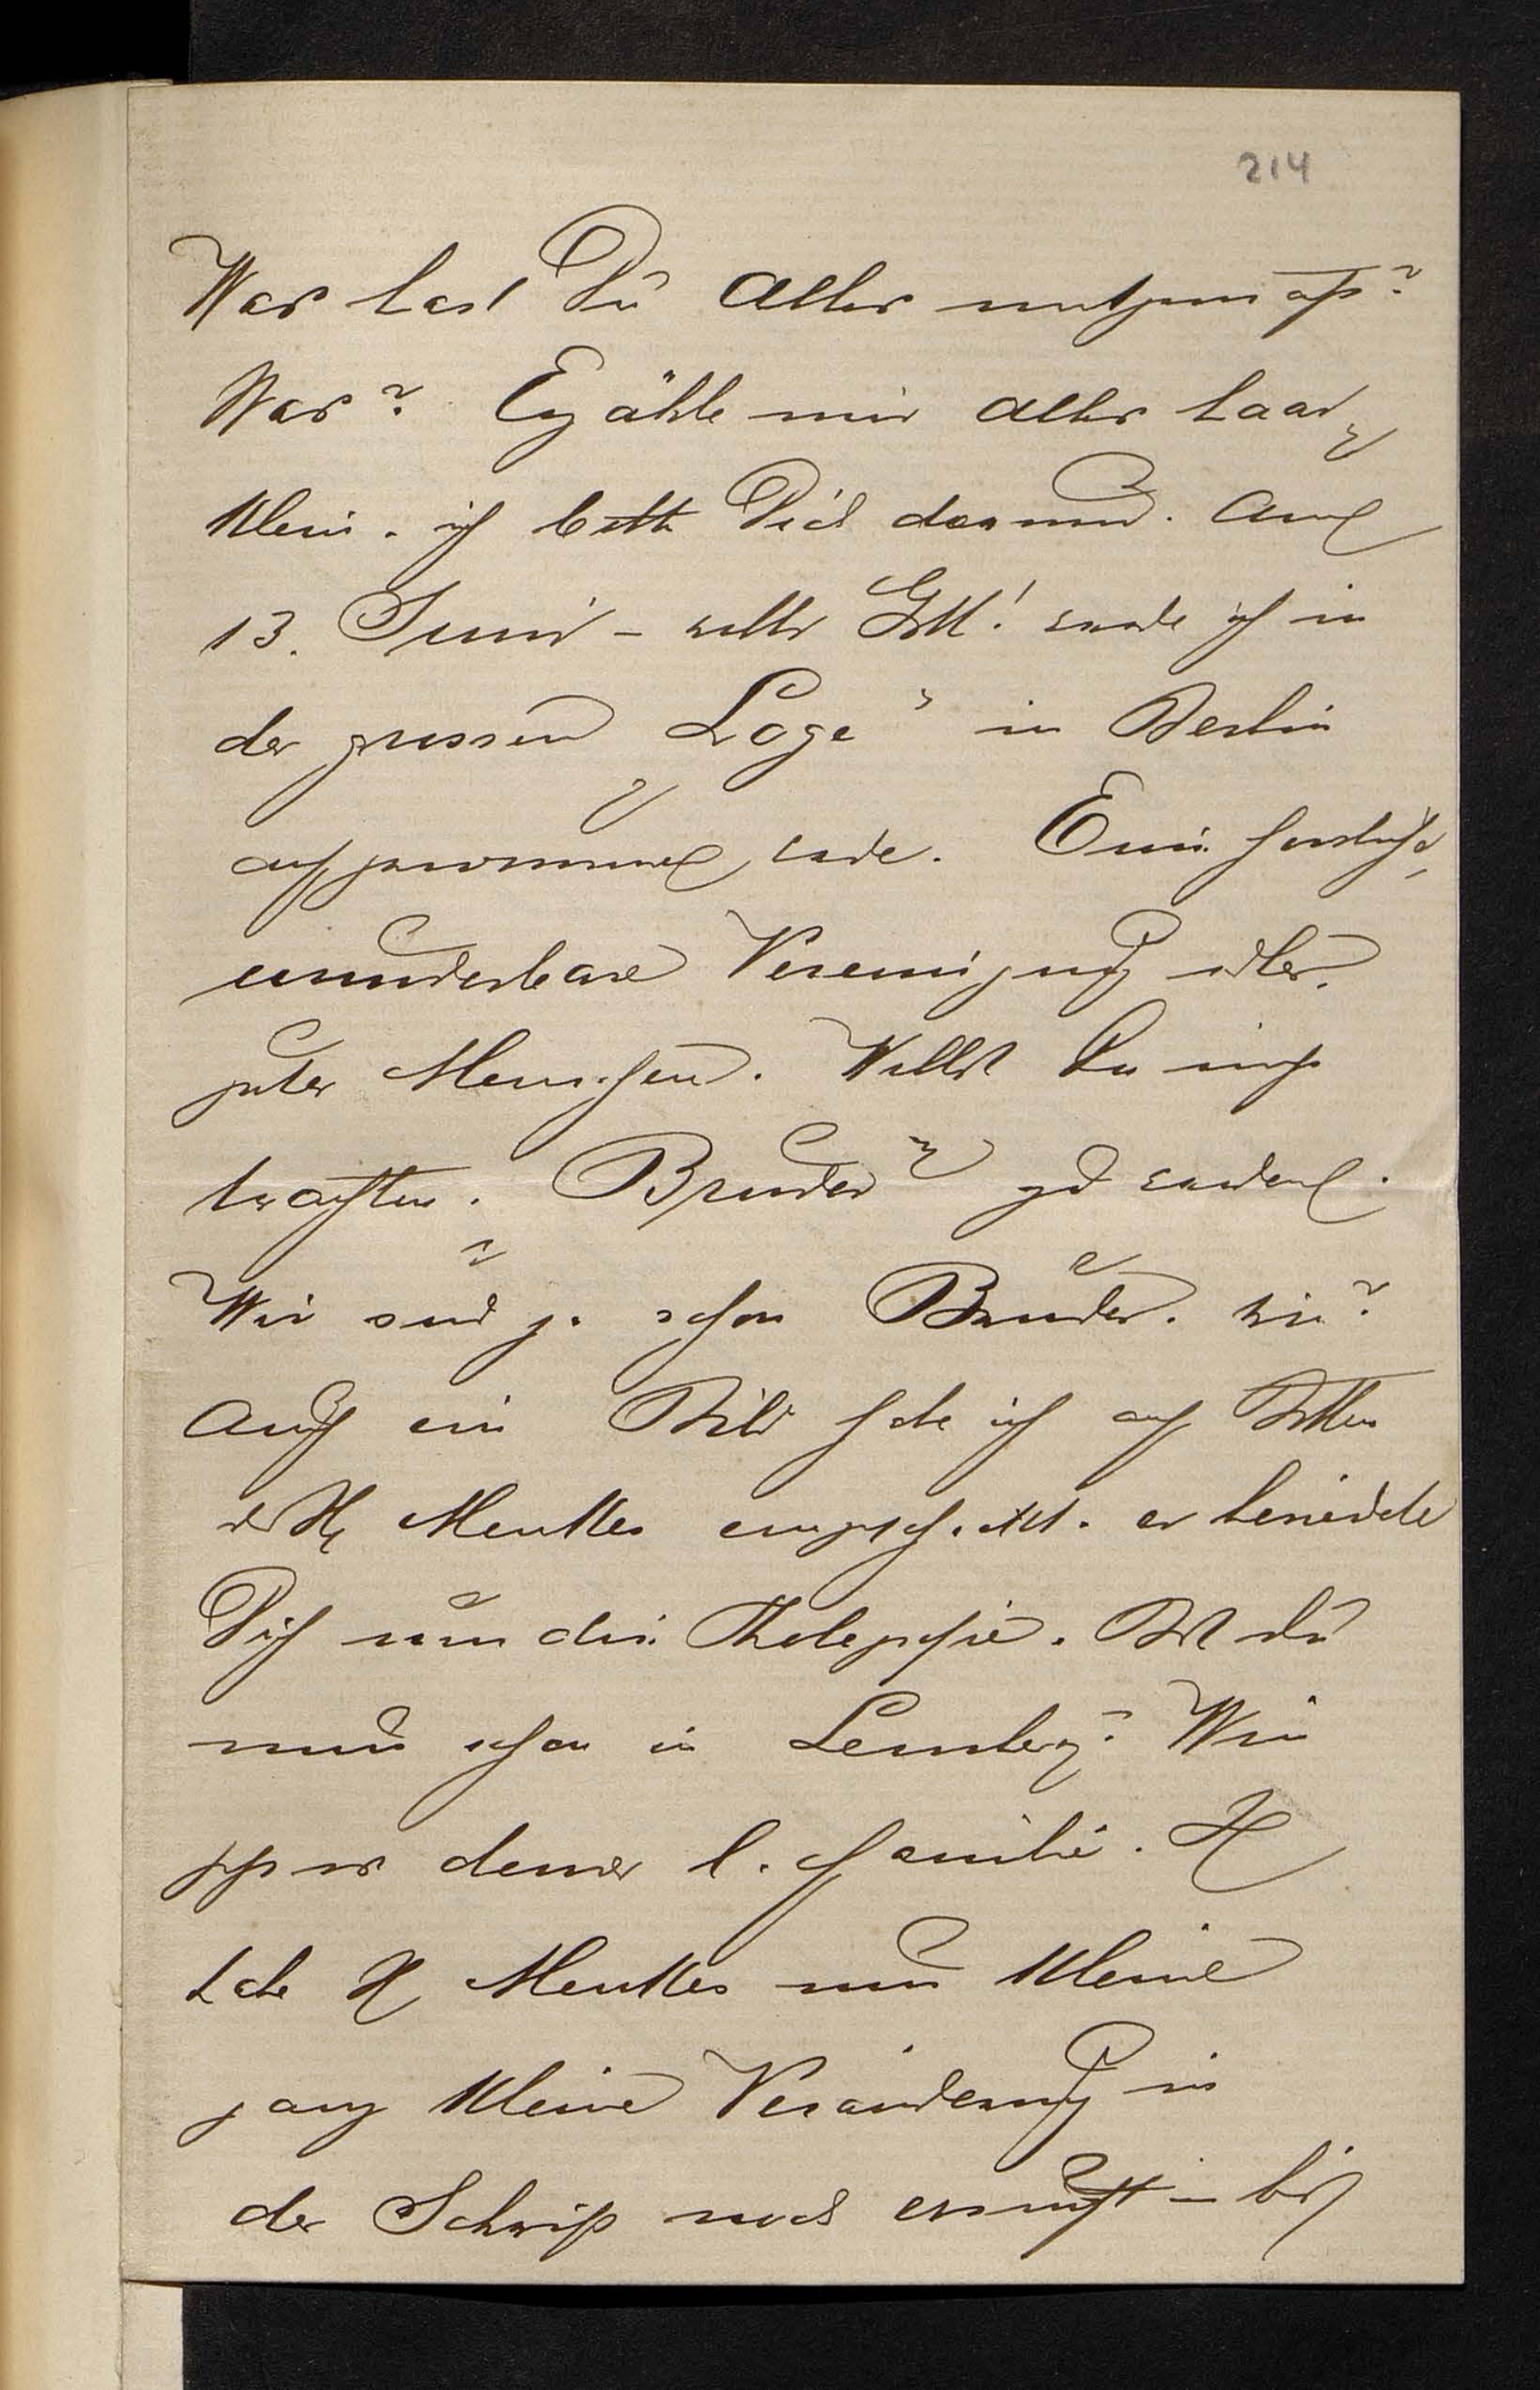 214
Was hast Du Alles mitgemacht?
Was? Erzähle mir alles haar
klein. ich bitte Dich darum. Am
13. Juni - wills Gott! werde ich in
der grossen „Loge" in Berlin
aufgenommen werde. Eine herrliche,
wunderbare Vereinigung edler,
guter Menschen. Willst Du nicht
trachten. „Bruder" zu werden.
Wir sind ja schon Brüder. wie?
Auch ein Bild habe ich auf Bitten
des H Menkes eingeschickt. er beneidete
Dich um die
nun schon in Lemberg? Wie
geht es deiner l. Familie. H
habe H Menkes um kleine
ganz kleine Veränderung in
der Schrift noch ersucht - bis